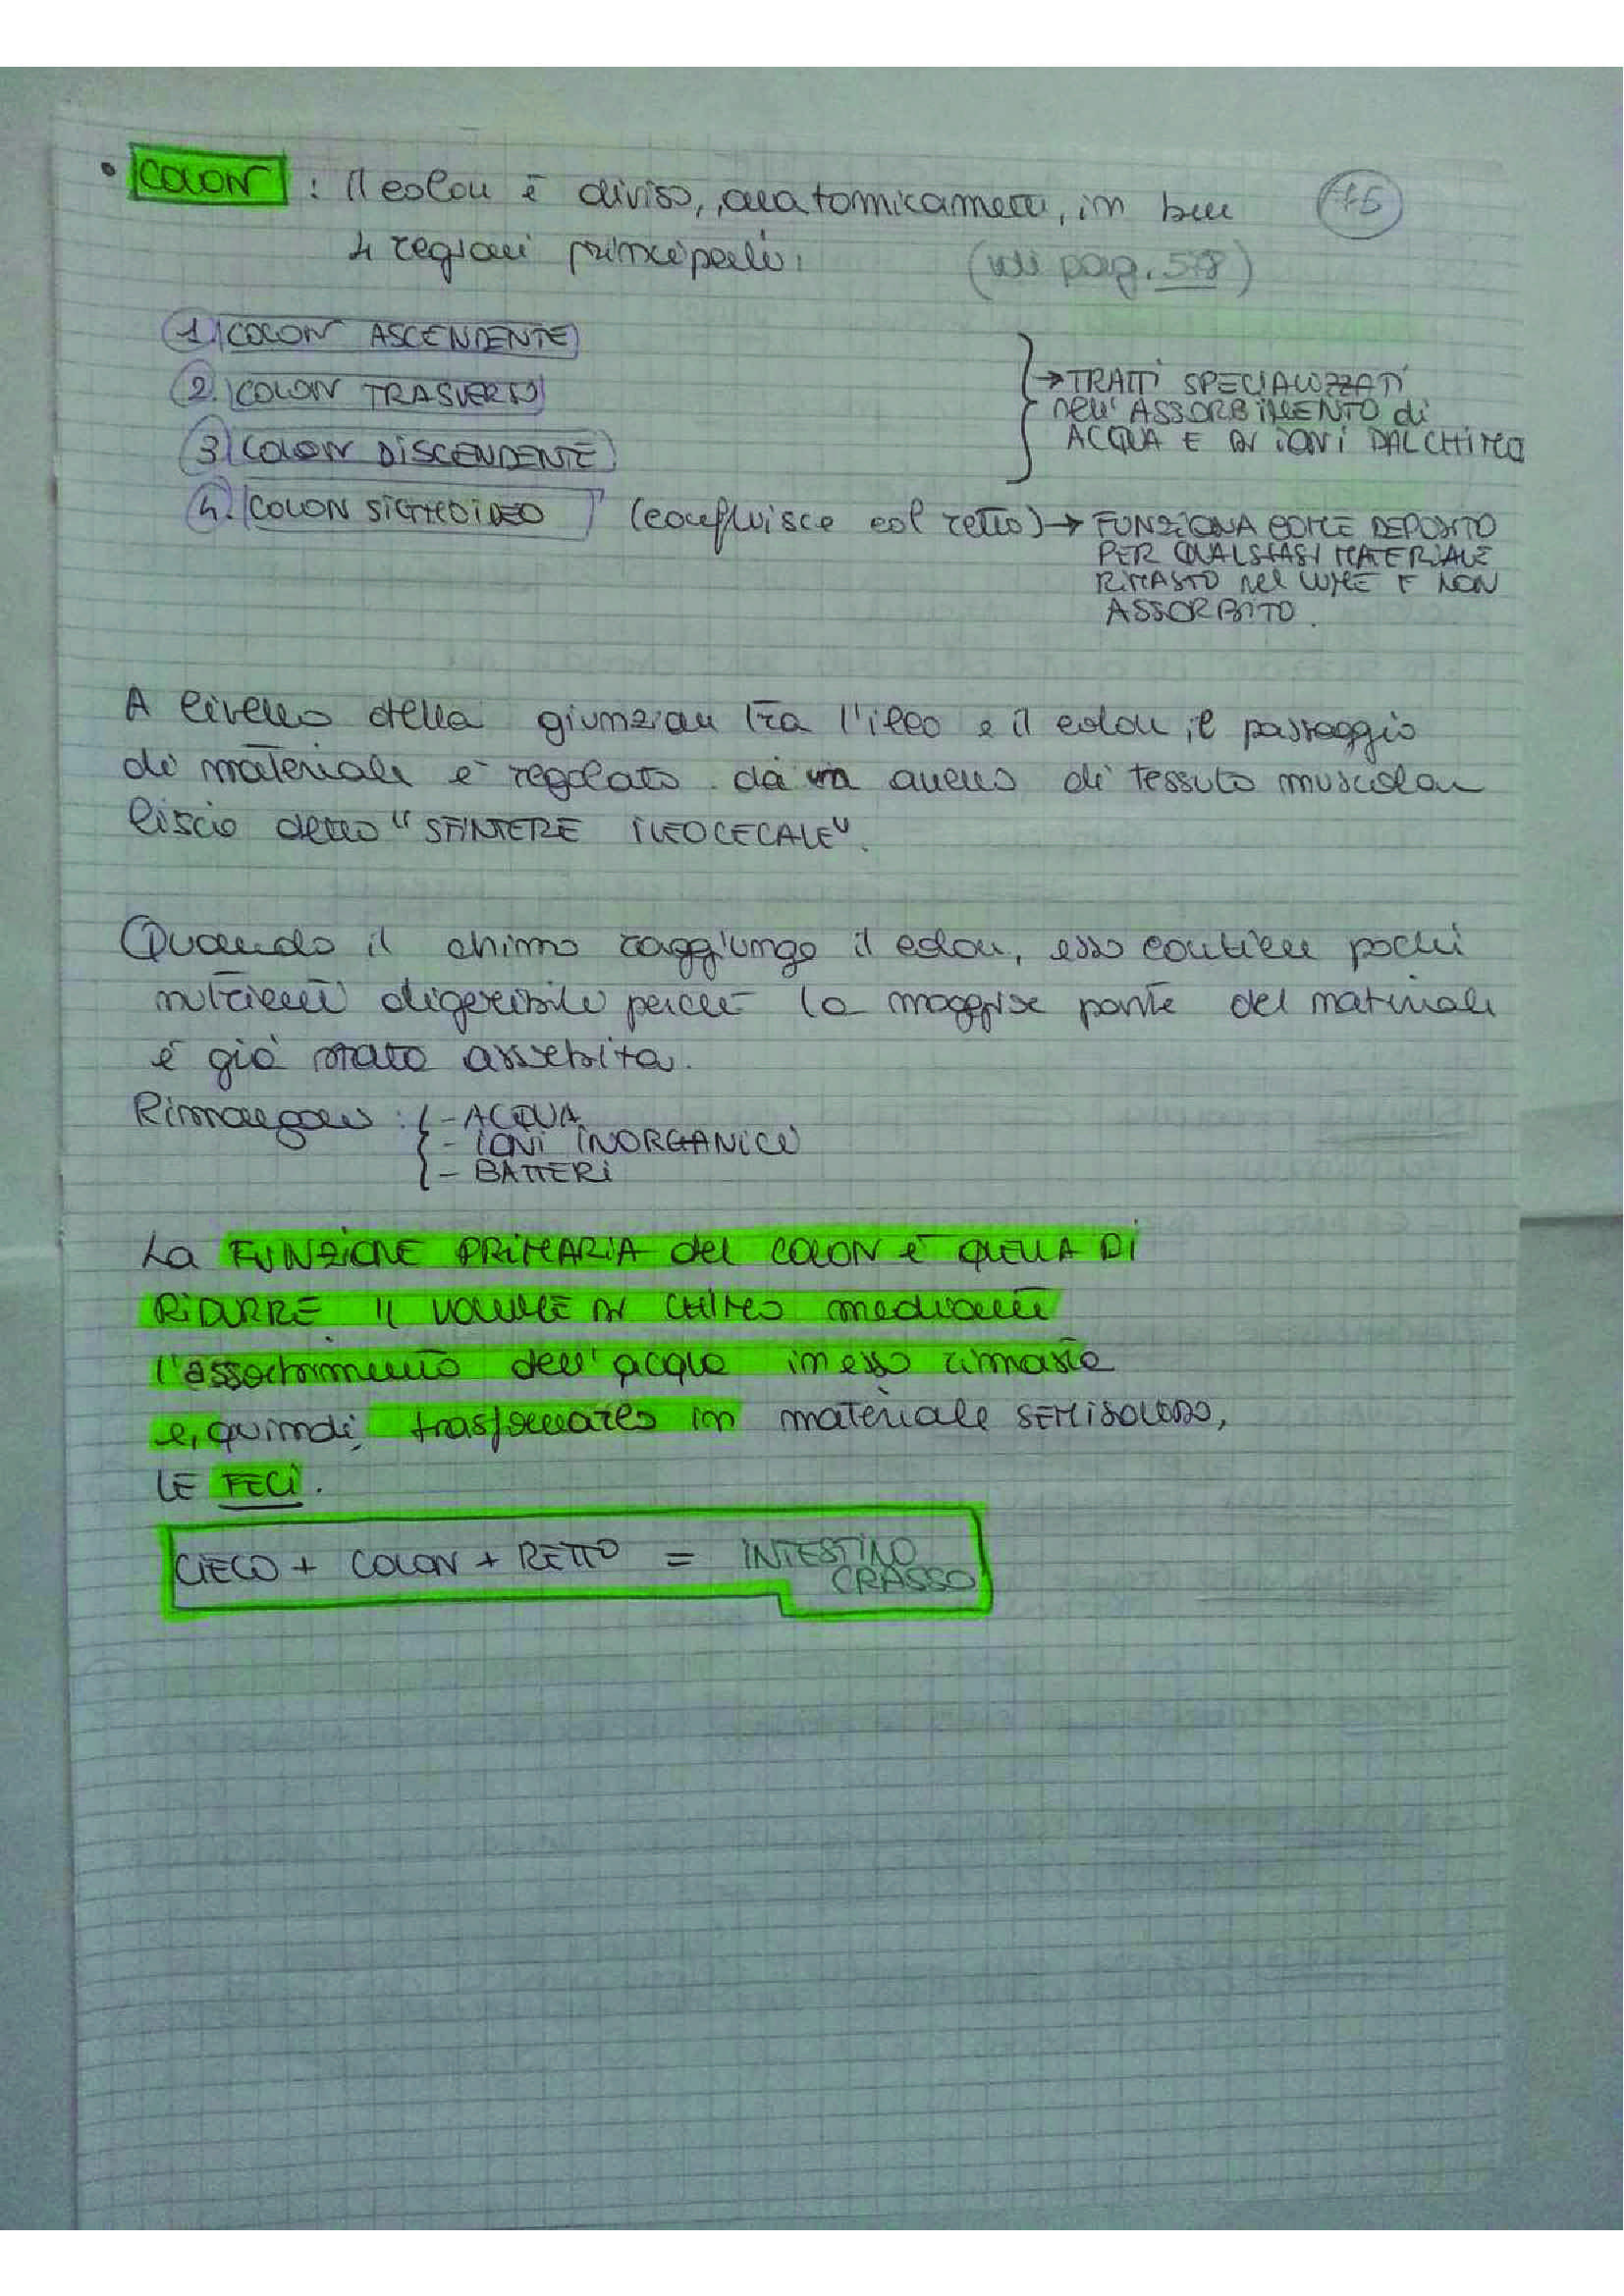 • COLON : Il colon è diviso, anatomicamente, in ben
4 regioni principali:
(vedi pag. 58)
1. COLON ASCENDENTE
2. COLON TRASVERSO
3. COLON DISCENDENTE
→ TRATTI SPECIALIZZATI
nell'ASSORBIMENTO di
ACQUA E DI IONI DAL CHIMO
4. COLON SIGMOIDEO (confluisce col retto) → FUNZIONA COME DEPOSITO
PER QUALSIASI MATERIALE
RIMASTO nel LUME E NON
ASSORBITO.
A livello della giunzione tra l'ileo e il colon, il passaggio
di materiale è regolato da un anello di tessuto muscolare
liscio detto "SFINTERE ILEOCECALE".
Quando il chimo raggiunge il colon, esso contiene pochi
nutrienti digeribili perché la maggior parte del materiale
è già stata assorbita.
Rimangono : - ACQUA
- IONI INORGANICI
- BATTERI
La FUNZIONE PRIMARIA del COLON è QUELLA DI
RIDURRE Il VOLUME DI CHIMO mediante
l'assorbimento dell'acqua in esso rimasta
e, quindi, trasformarlo in materiale SEMISOLIDO,
LE FECI.
CIECO + COLON + RETTO = INTESTINO
CRASSO